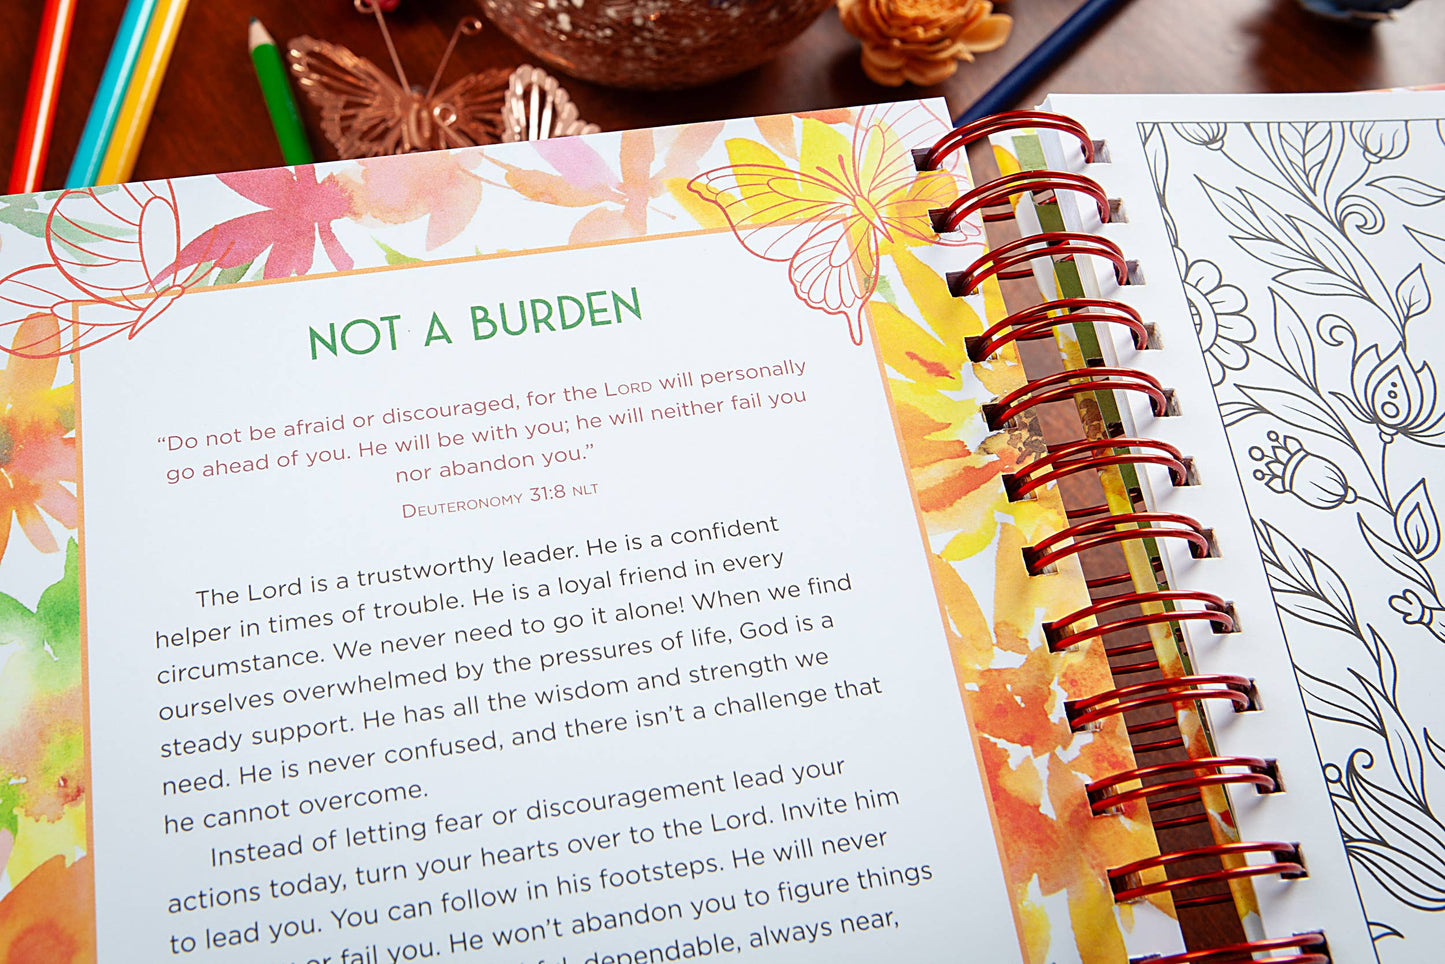 NOT A BURDEN
“Do not be afraid or discouraged, for the LORD will personally
go ahead of you. He will be with you; he will neither fail you
nor abandon you.”
DEUTERONOMY 31:8 NLT
The Lord is a trustworthy leader. He is a confident
helper in times of trouble. He is a loyal friend in every
circumstance. We never need to go it alone! When we find
ourselves overwhelmed by the pressures of life, God is a
steady support. He has all the wisdom and strength we
need. He is never confused, and there isn’t a challenge that
he cannot overcome.
Instead of letting fear or discouragement lead your
actions today, turn your hearts over to the Lord. Invite him
to lead you. You can follow in his footsteps. He will never
or fail you. He won’t abandon you to figure things
dependable, always near,